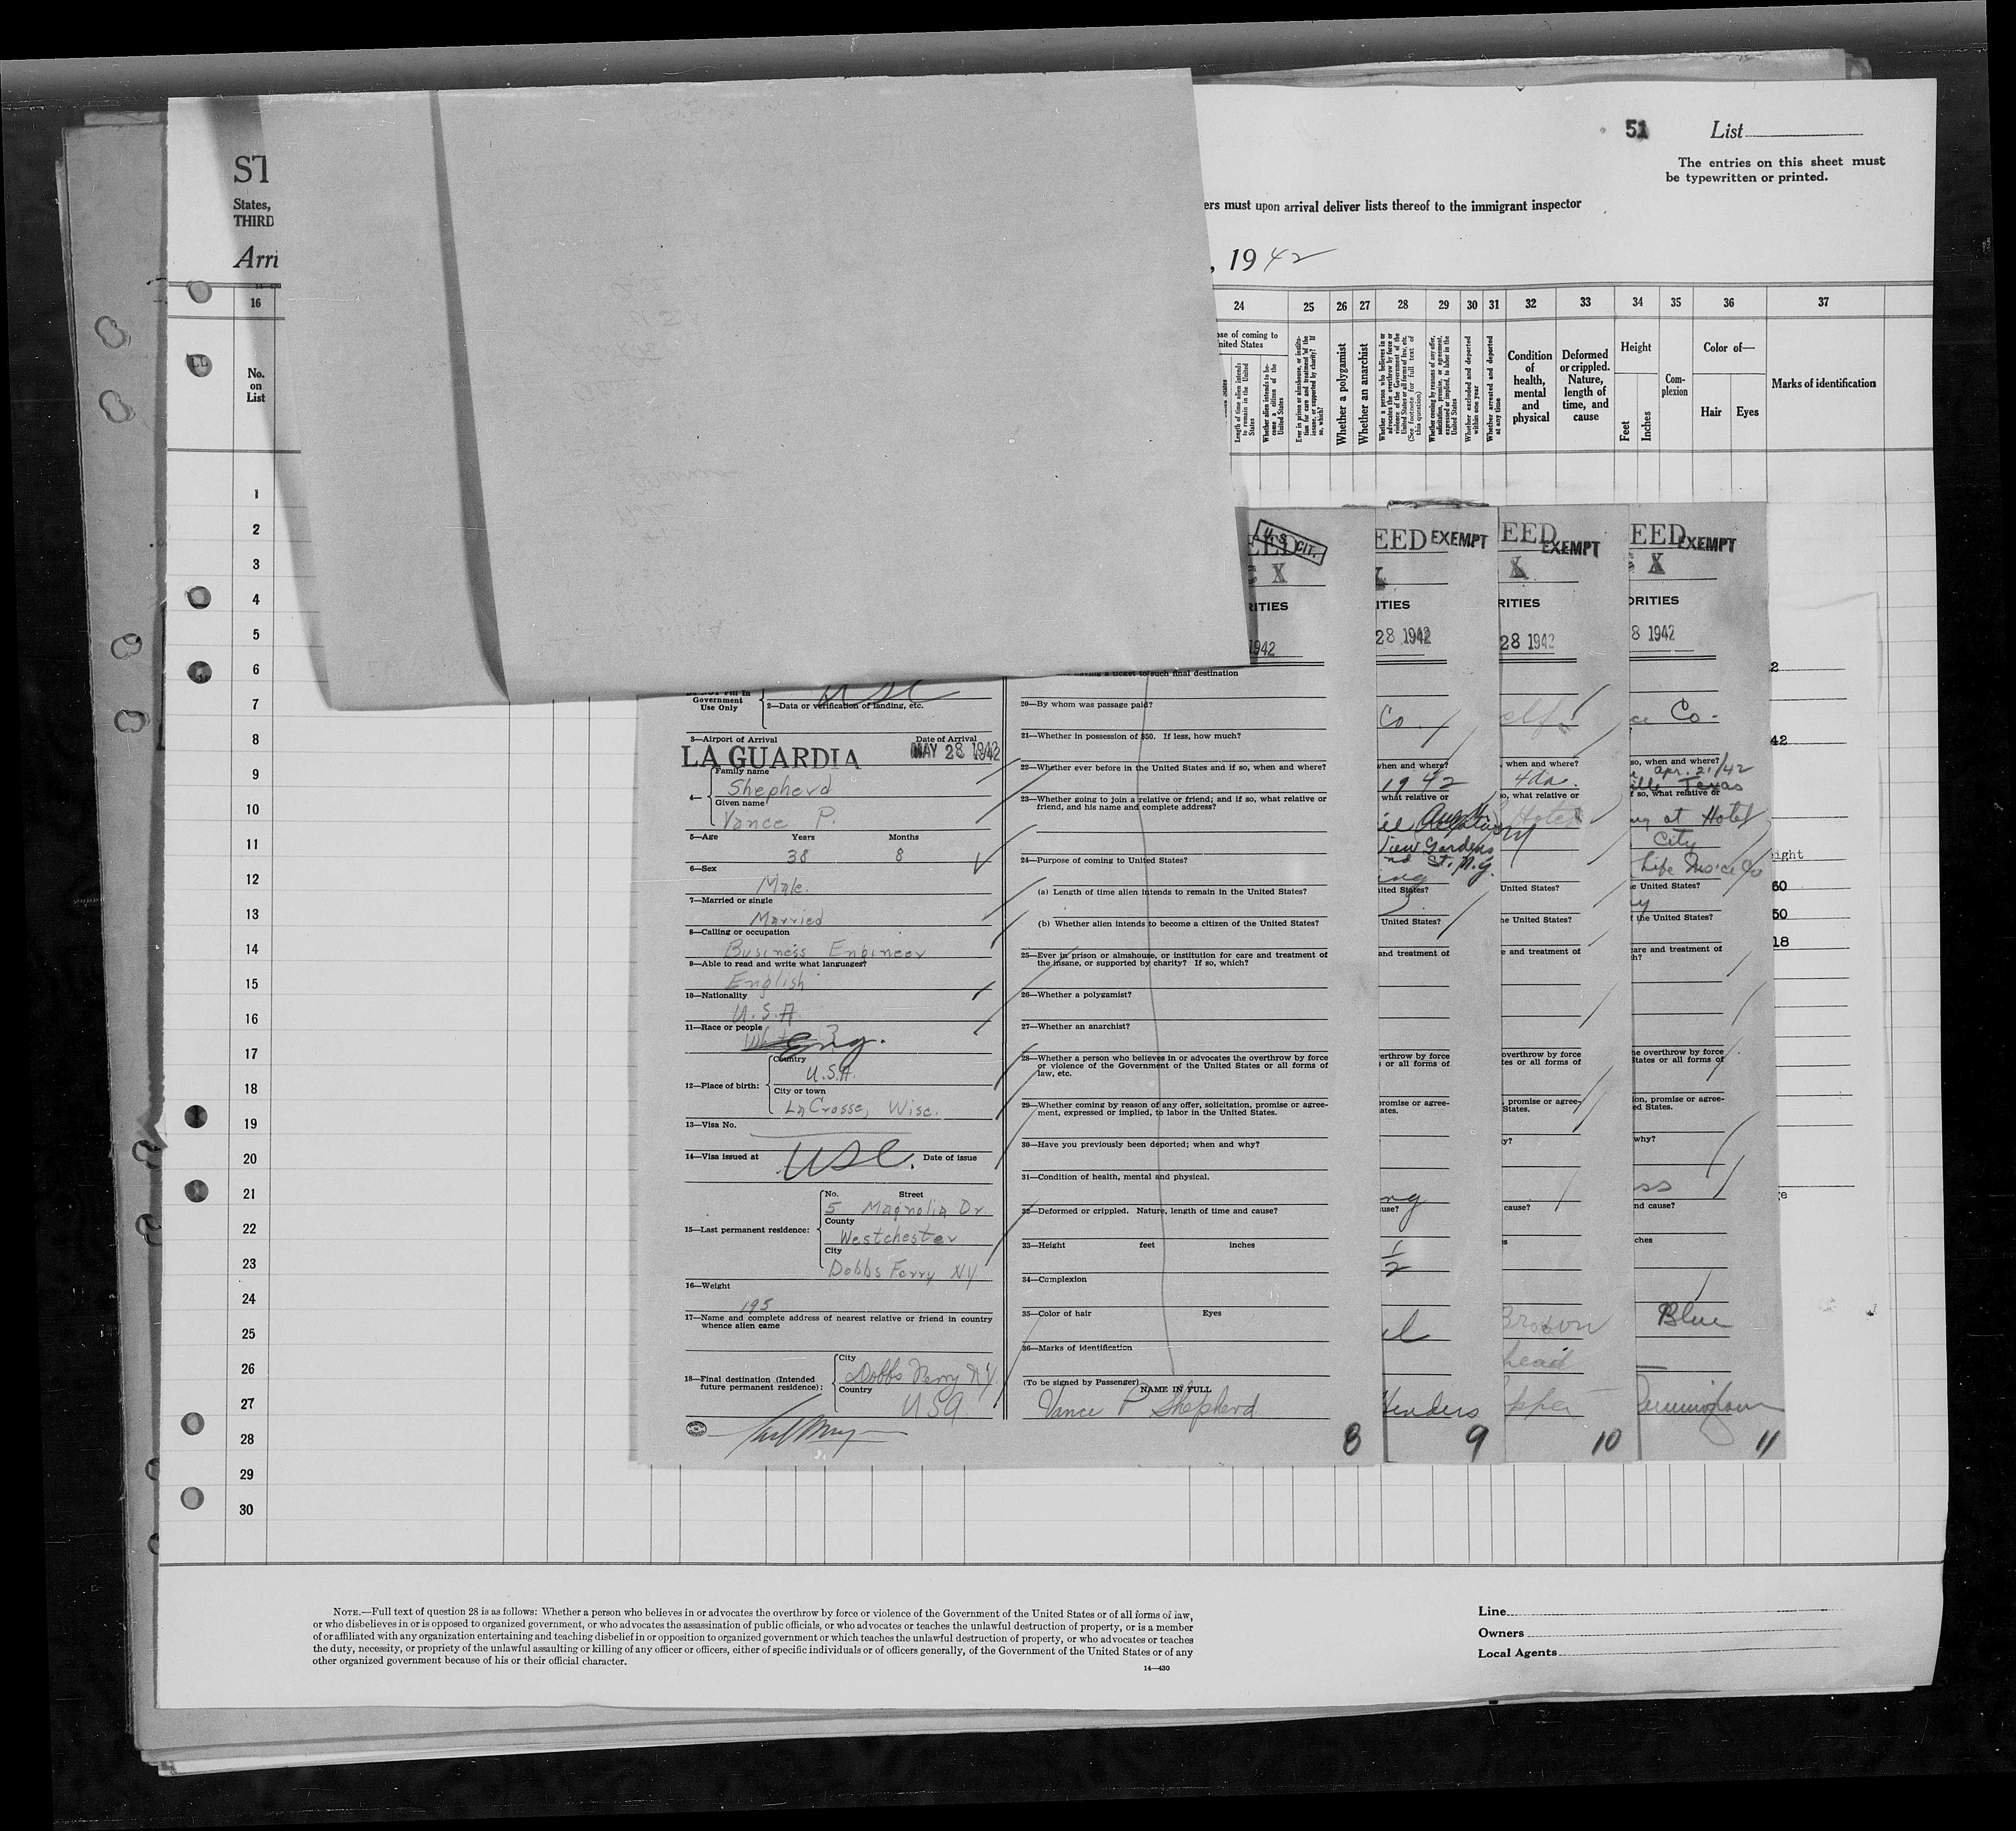 51 List
The entries on this sheet must
be typewritten or printed.
ST
States,
THIRD
ers must upon arrival deliver lists thereof to the immigrant inspector
Arri
, 1942
16 24 25 26 27 28 29 30 31 32 33 34 35 36 37
No.
on
List
ose of coming to
nited States
Length of time alien intends to remain in the United States
Whether alien intends to become a citizen of the United States
Ever in prison or almshouse, or institution for care and treatment of the insane, or supported by charity? If so, which?
Whether a polygamist
Whether an anarchist
Whether a person who believes in or advocates the overthrow by force or violence of the Government of the United States or all forms of law, etc. (See footnote for full text of this question)
Whether coming by reason of any offer, solicitation, promise, or agreement, expressed or implied, to labor in the United States
Whether excluded and deported within one year
Whether arrested and deported at any time
Condition
of
health,
mental
and
physical
Deformed
or crippled.
Nature,
length of
time, and
cause
Height
Feet
Inches
Com-
plexion
Color of—
Hair Eyes
Marks of identification
1
2
3
4
5
6
7
8
9
10
11
12
13
14
15
16
17
18
19
20
21
22
23
24
25
26
27
28
29
30
Government
Use Only
2—Data or verification of landing, etc.
3—Airport of Arrival Date of Arrival
LA GUARDIA MAY 28 1942
4— Family name
Shepherd
Given name
Vance P.
5—Age Years Months
38 8
6—Sex
Male.
7—Married or single
Married
8—Calling or occupation
Business Engineer
9—Able to read and write what languages?
English
10—Nationality
U.S.A.
11—Race or people
Eng.
12—Place of birth:
Country
U.S.A.
City or town
LaCrosse, Wisc.
13—Visa No.
14—Visa issued at USC. Date of issue
15—Last permanent residence:
No. Street
5 Magnolia Dr.
County
Westchester
City
Dobbs Ferry NY
16—Weight
195
17—Name and complete address of nearest relative or friend in country
whence alien came
18—Final destination (Intended
future permanent residence):
City
Dobbs Ferry N.Y.
Country
USA
U.S. CIT.
EED
X
RITIES
1942
having a ticket to such final destination
20—By whom was passage paid?
21—Whether in possession of $50. If less, how much?
22—Whether ever before in the United States and if so, when and where?
23—Whether going to join a relative or friend; and if so, what relative or
friend, and his name and complete address?
24—Purpose of coming to United States?
(a) Length of time alien intends to remain in the United States?
(b) Whether alien intends to become a citizen of the United States?
25—Ever in prison or almshouse, or institution for care and treatment of
the insane, or supported by charity? If so, which?
26—Whether a polygamist?
27—Whether an anarchist?
28—Whether a person who believes in or advocates the overthrow by force
or violence of the Government of the United States or all forms of
law, etc.
29—Whether coming by reason of any offer, solicitation, promise or agree-
ment, expressed or implied, to labor in the United States.
30—Have you previously been deported; when and why?
31—Condition of health, mental and physical.
32—Deformed or crippled. Nature, length of time and cause?
33—Height feet inches
34—Complexion
35—Color of hair Eyes
36—Marks of identification
(To be signed by Passenger)
NAME IN FULL
Vance P Shepherd
8
EED EXEMPT
ITIES
28 1942
Co.
when and where?
1942
what relative or
View Gardens
nd St. N.Y.
ited States?
United States?
and treatment of
verthrow by force
s or all forms of
promise or agree-
ates.
ng
use?
1/2
Henders
9
EED EXEMPT
X
RITIES
28 1942
elf
, when and where?
4da.
o, what relative or
Hotel
United States?
he United States?
e and treatment of
overthrow by force
tes or all forms of
, promise or agree-
States.
y?
cause?
s
Brown
head
pper
10
EED EXEMPT
X
ORITIES
8 1942
ce Co.
so, when and where?
Apr. 21/42
ille Texas
f so, what relative or
ng at Hotel
City
Life Ins. Co
e United States?
ny
f the United States?
care and treatment of
h?
he overthrow by force
States or all forms of
ion, promise or agree-
ed States.
why?
ss
nd cause?
ches
Blue
11
2
42
ight
60
50
18
e
NOTE.—Full text of question 28 is as follows: Whether a person who believes in or advocates the overthrow by force or violence of the Government of the United States or of all forms of law,
or who disbelieves in or is opposed to organized government, or who advocates the assassination of public officials, or who advocates or teaches the unlawful destruction of property, or is a member
of or affiliated with any organization entertaining and teaching disbelief in or opposition to organized government or which teaches the unlawful destruction of property, or who advocates or teaches
the duty, necessity, or propriety of the unlawful assaulting or killing of any officer or officers, either of specific individuals or of officers generally, of the Government of the United States or of any
other organized government because of his or their official character.
14—430
Line
Owners
Local Agents